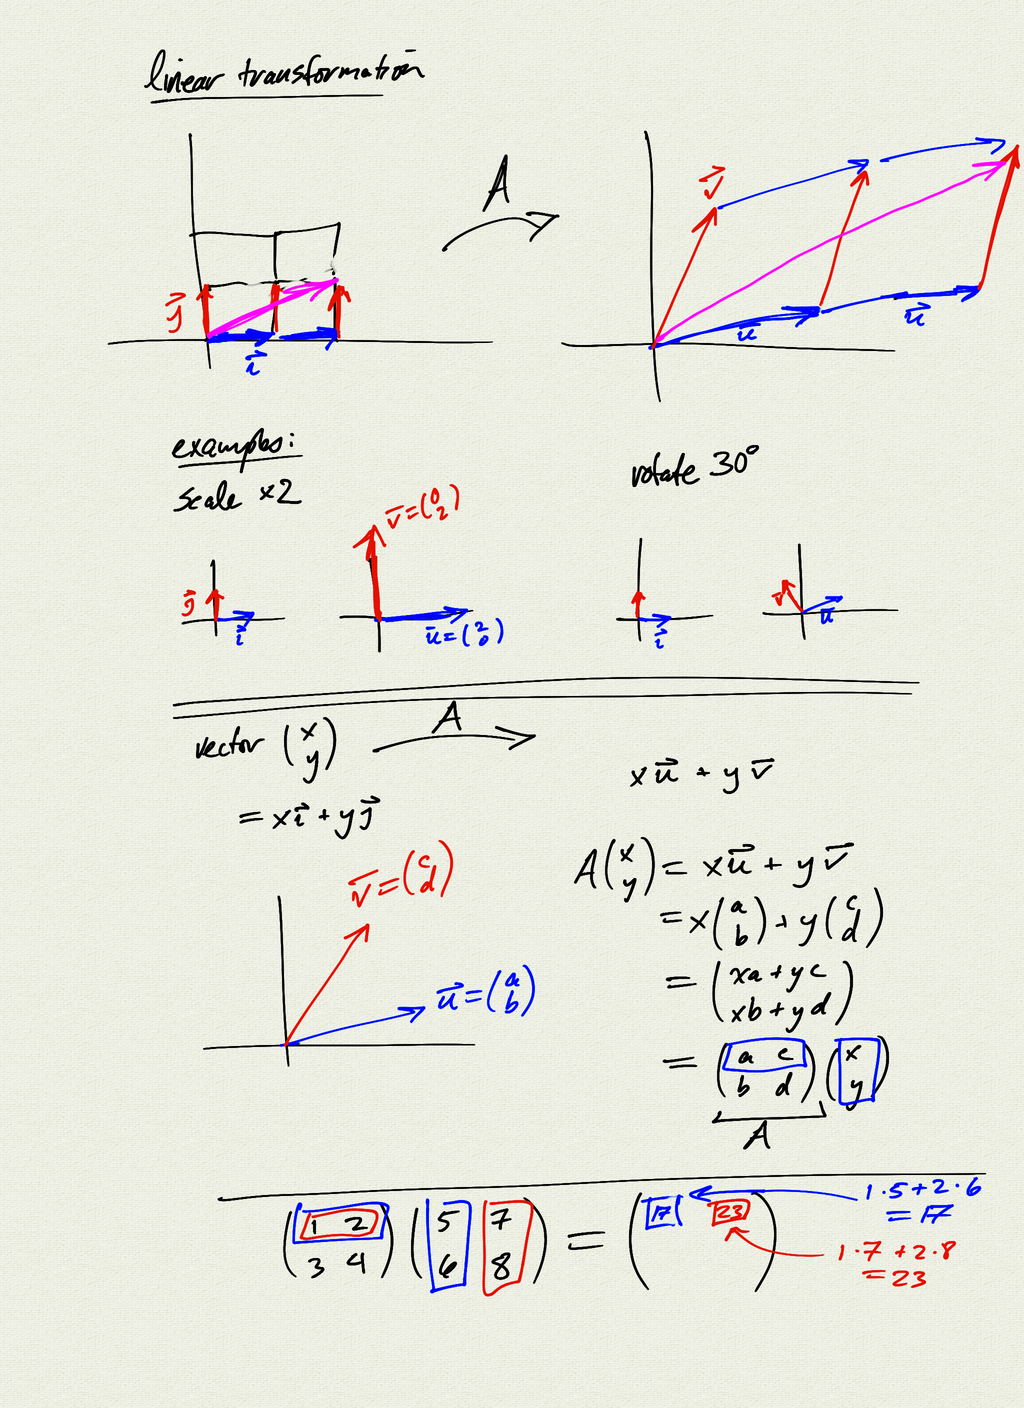 linear transformation
A
v⃗
j⃗
i⃗
u⃗
u⃗
examples:
scale ×2
rotate 30°
v⃗ = (0 2)
j⃗
i⃗
u⃗ = (2 0)
i⃗
v⃗
u⃗
vector (x y)
A
x u⃗ + y v⃗
= x i⃗ + y j⃗
v⃗ = (c d)
u⃗ = (a b)
A (x y) = x u⃗ + y v⃗
= x (a b) + y (c d)
= (xa + yc
xb + yd)
= (a c
b d) (x y)
A
(1 2
3 4) (5 7
6 8) = (17 23)
1·5 + 2·6
= 17
1·7 + 2·8
= 23